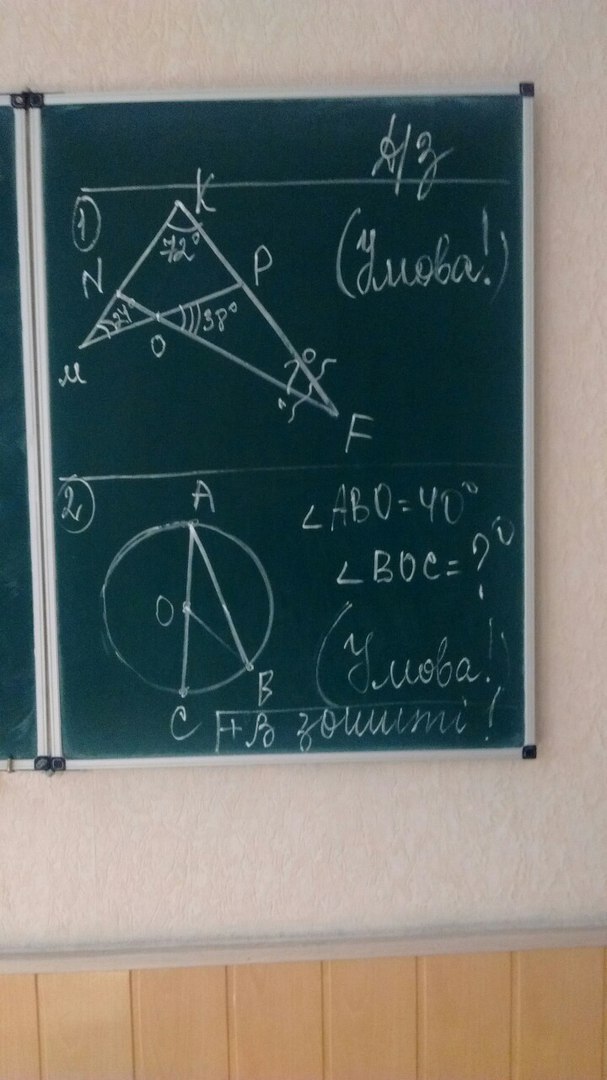 Д/з
1
K
72°
(Умова!)
N
P
24°
38°
O
M
?°
F
2
A
∠ABO=40°
∠BOC=?°
O
(Умова!)
B
C
+В зошиті!